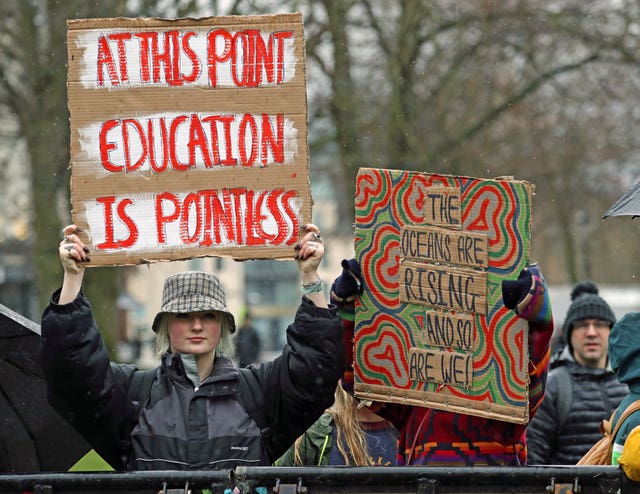 AT THIS POINT
EDUCATION
IS POINTLESS
THE
OCEANS ARE
RISING
AND SO
ARE WE!